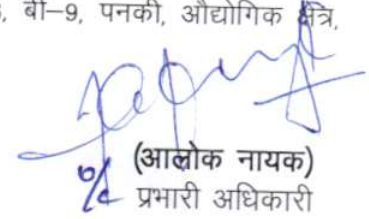 , बी–9, पनकी, औद्योगिक क्षेत्र,
(आलोक नायक)
प्रभारी अधिकारी